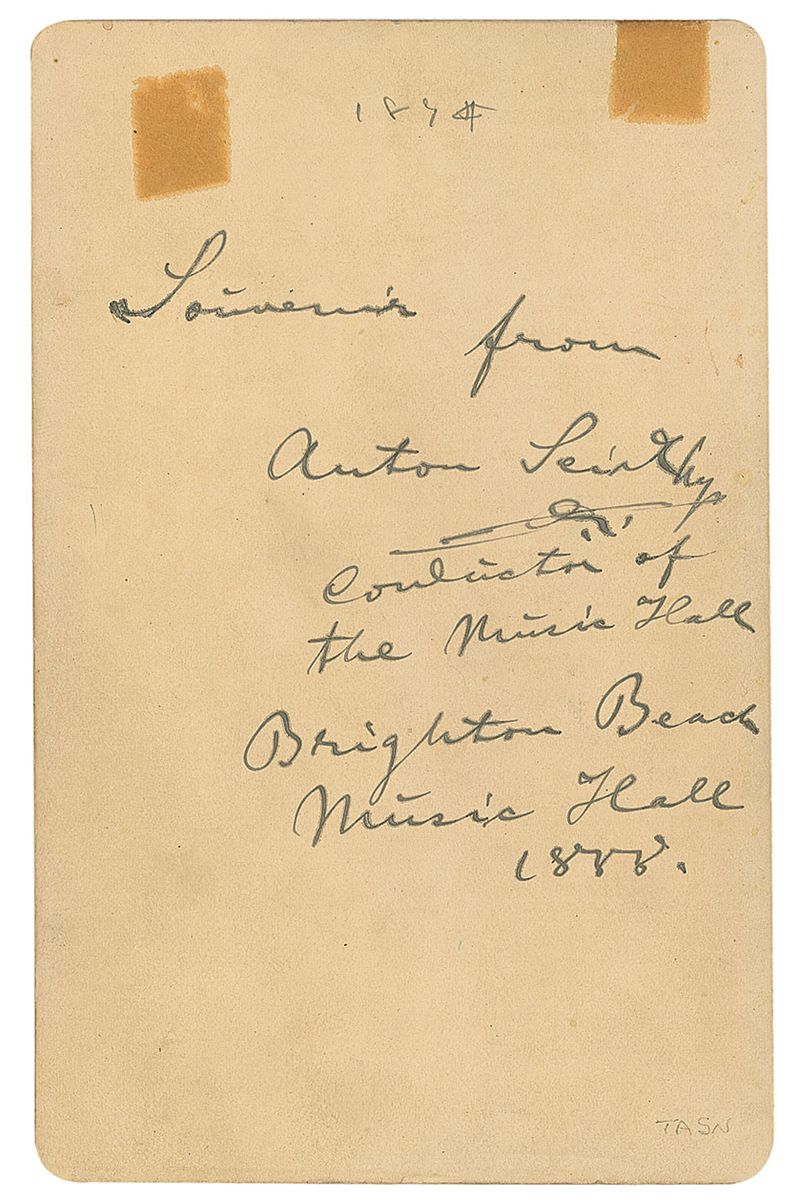 Souvenir
from
Anton
Conductor of
the Music Hall
Brighton Beach
Music Hall
1888.
TASN